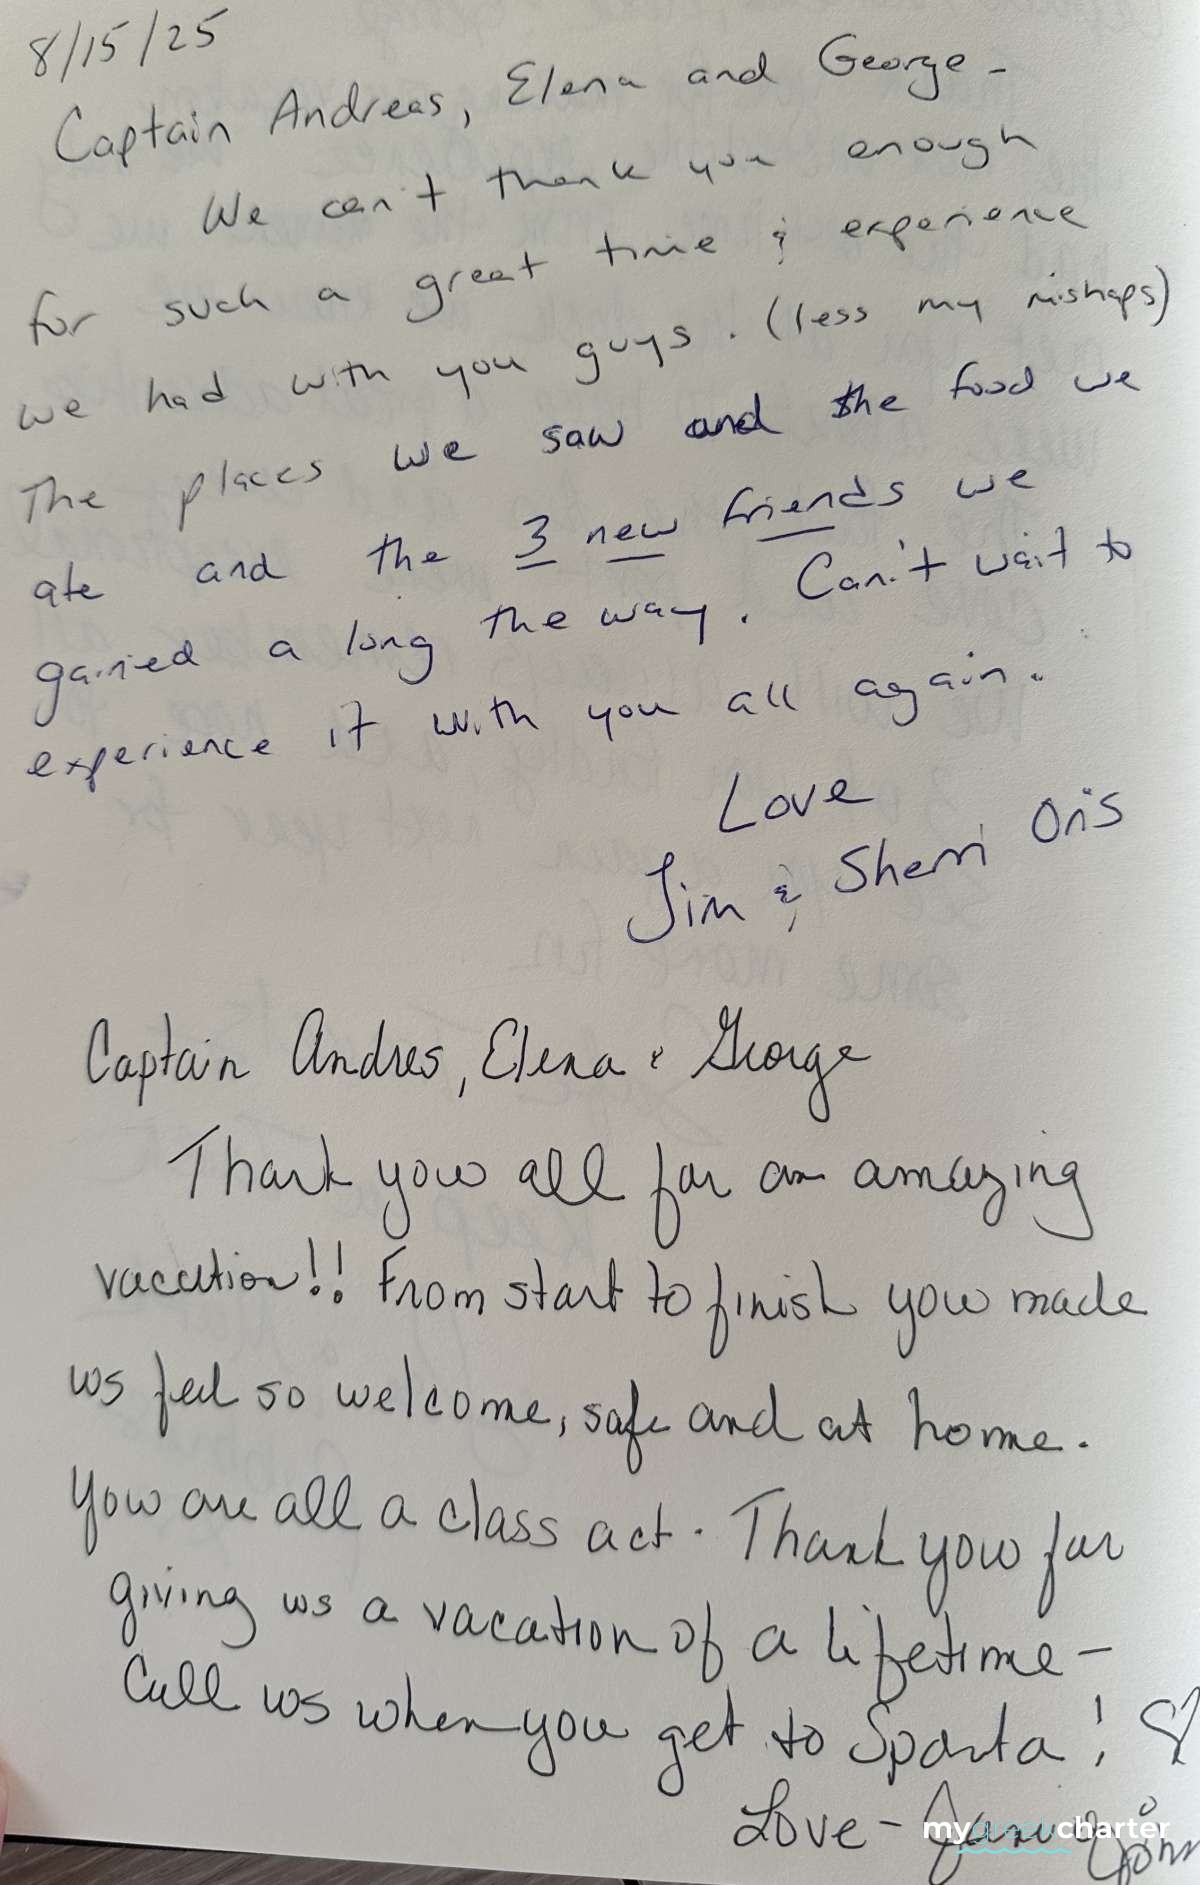 8/15/25
Captain Andreas, Elena and George -
We can't thank you enough
for such a great time & experience
we had with you guys. (less my mishaps)
The places we saw and the food we
ate and the 3 new friends we
gained a long the way. Can't wait to
experience it with you all again.
Love
Jim & Sherri Oris
Captain Andres, Elena & George
Thank you all for an amazing
vacation!! From start to finish you made
us feel so welcome, safe and at home.
You are all a class act. Thank you for
giving us a vacation of a lifetime -
Call us when you get to Sparta! ♡
Love -
mygreekcharter